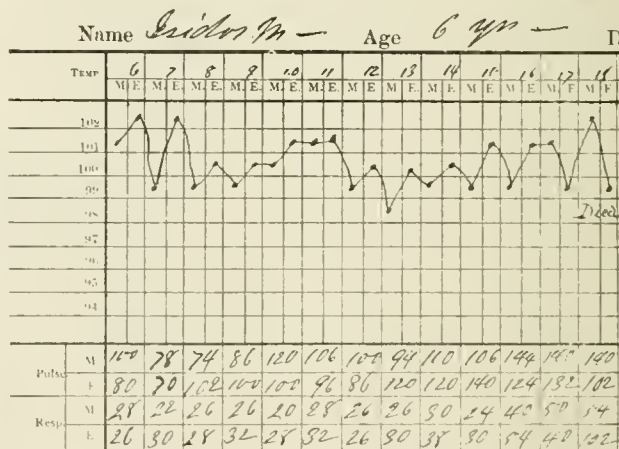 Name Isidor M — Age 6 yrs — D
TEMP 6 7 8 9 10 11 12 13 14 15 16 17 18
M. E. M. E. M. E. M. E. M. E. M. E. M. E. M. E. M. E. M. E. M. E. M. E. M. E.
102
101
100
99
98 Died
97
96
95
94
Pulse M 100 78 74 86 120 106 100 94 110 106 144 140 140
E 80 70 102 100 100 96 86 120 120 140 124 132 102
Resp. M 28 22 26 26 20 28 26 26 30 24 40 50 54
E 26 30 28 32 28 32 26 30 38 30 54 40